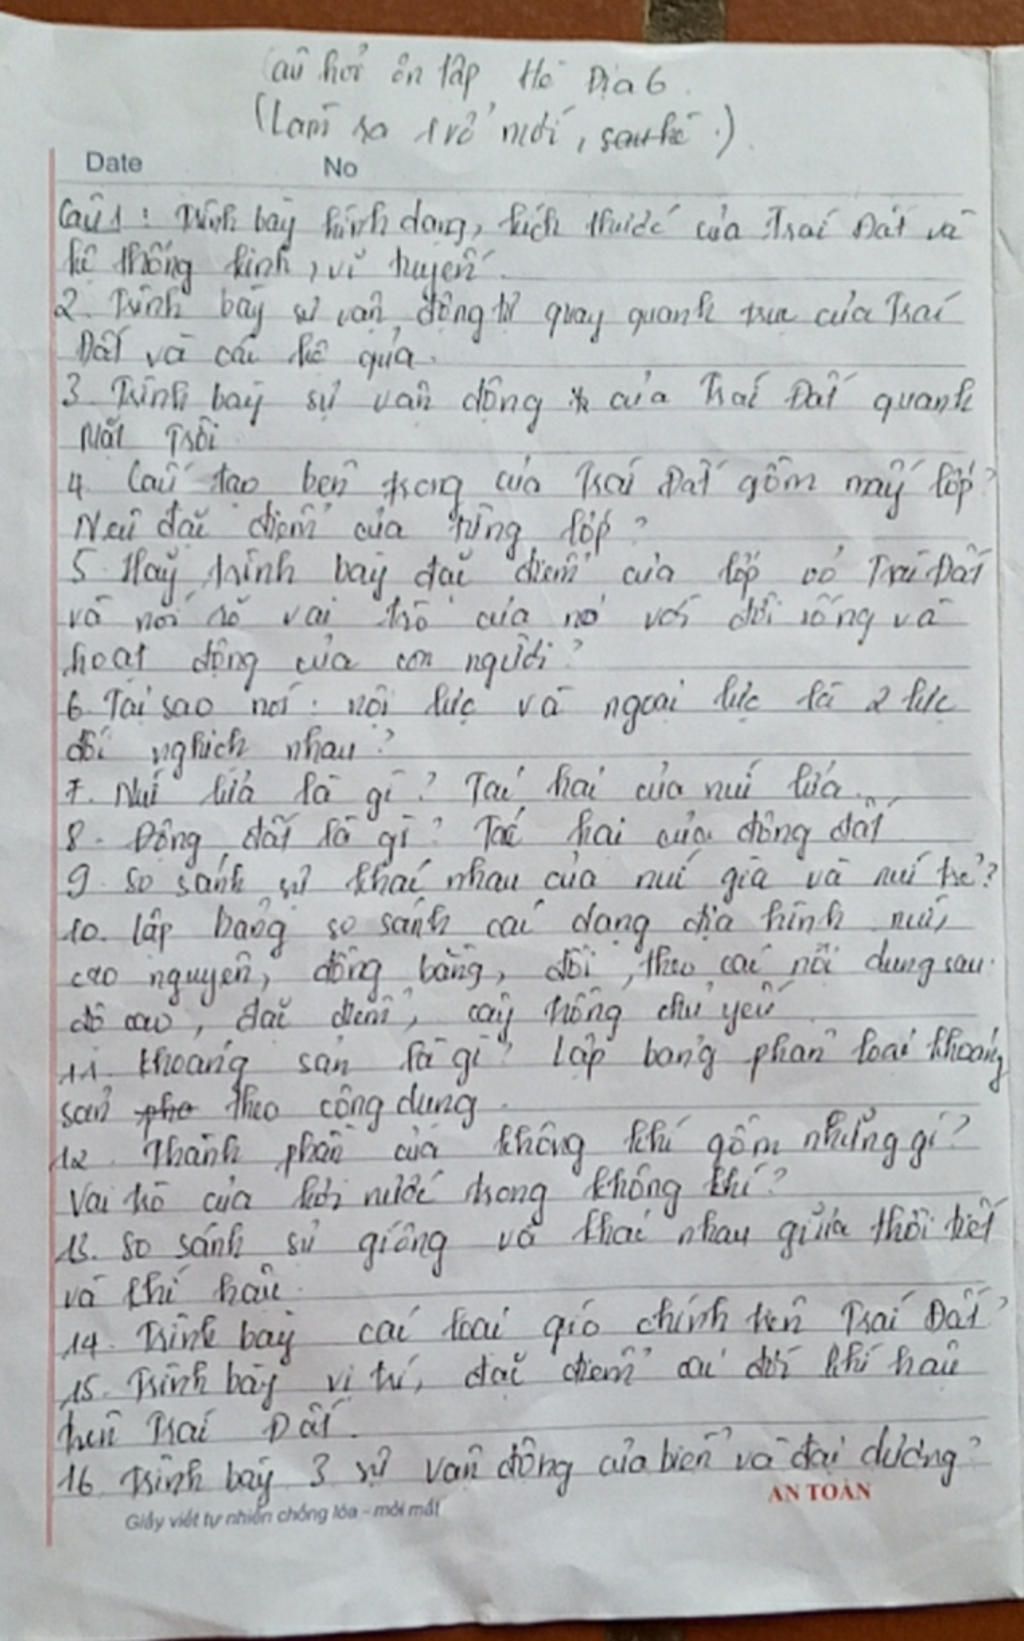 Câu hỏi ôn tập Hè Địa 6.
(Làm ra vở mới, sau hè.)
Date No
Câu 1: Trình bày hình dạng, kích thước của Trái Đất và
hệ thống kinh, vĩ tuyến.
2. Trình bày sự vận động tự quay quanh trục của Trái
Đất và các hệ quả.
3. Trình bày sự vận động của Trái Đất quanh
Mặt Trời
4. Cấu tạo bên trong của Trái Đất gồm mấy lớp?
Nêu đặc điểm của từng lớp?
5. Hãy trình bày đặc điểm của lớp vỏ Trái Đất
và nói rõ vai trò của nó với đời sống và
hoạt động của con người?
6. Tại sao nói: nội lực và ngoại lực là 2 lực
đối nghịch nhau?
7. Núi lửa là gì? Tác hại của núi lửa.
8. Động đất là gì? Tác hại của động đất
9. So sánh sự khác nhau của núi già và núi trẻ?
10. Lập bảng so sánh các dạng địa hình núi,
cao nguyên, đồng bằng, đồi, theo các nội dung sau:
độ cao, đặc điểm, cây trồng chủ yếu
11. Khoáng sản là gì? Lập bảng phân loại khoáng
sản theo công dụng.
12. Thành phần của không khí gồm những gì?
Vai trò của hơi nước trong không khí?
13. So sánh sự giống và khác nhau giữa thời tiết
và khí hậu.
14. Trình bày các loại gió chính trên Trái Đất?
15. Trình bày vị trí, đặc điểm các đới khí hậu
trên Trái Đất.
16. Trình bày 3 sự vận động của biển và đại dương?
Giấy viết tự nhiên chống lóa - mỏi mắt
AN TOÀN